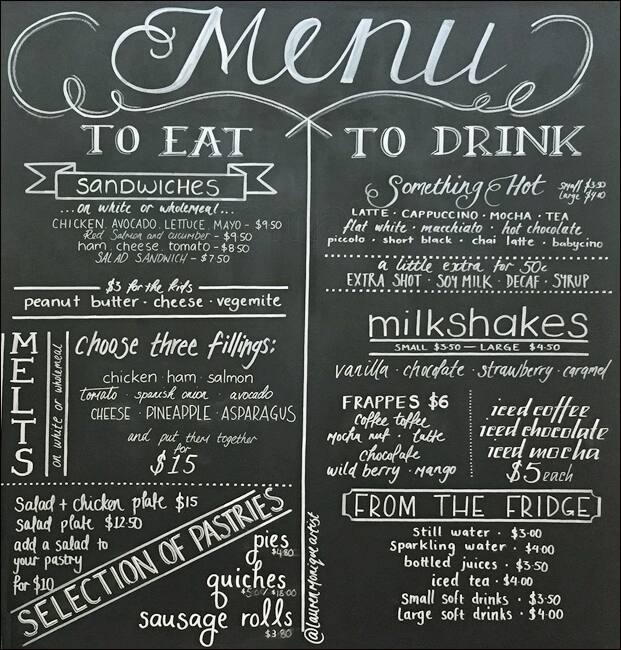 Menu
TO EAT
SANDWICHES
...on white or wholemeal...
CHICKEN. AVOCADO. LETTUCE. MAYO - $9.50
Red Salmon and cucumber - $9.50
ham. cheese. tomato - $8.50
SALAD SANDWICH - $7.50
$3 for the kids
peanut butter · cheese · vegemite
MELTS
on white or wholemeal
choose three fillings:
chicken · ham · salmon
tomato · spanish onion · avocado
CHEESE · PINEAPPLE · ASPARAGUS
and put them together
for
$15
Salad + chicken plate $15
salad plate $12.50
add a salad to
your pastry
for $10
SELECTION OF PASTRIES
pies
$4.80
quiches
$5.00/$18.00
sausage rolls
$3.80
@laurenmoniqueartist
TO DRINK
Something Hot
small $3.50
large $4.00
LATTE · CAPPUCCINO · MOCHA · TEA
flat white · macchiato · hot chocolate
piccolo · short black · chai latte · babycino
a little extra for 50c
EXTRA SHOT · SOY MILK · DECAF · SYRUP
milkshakes
SMALL $3.50 — LARGE $4.50
vanilla · chocolate · strawberry · caramel
FRAPPES $6
coffee toffee
mocha nut · latte
chocolate
wild berry · mango
iced coffee
iced chocolate
iced mocha
$5 each
FROM THE FRIDGE
Still water · $3.00
Sparkling water · $4.00
bottled juices · $3.50
iced tea · $4.00
Small soft drinks · $3.50
Large soft drinks · $4.00